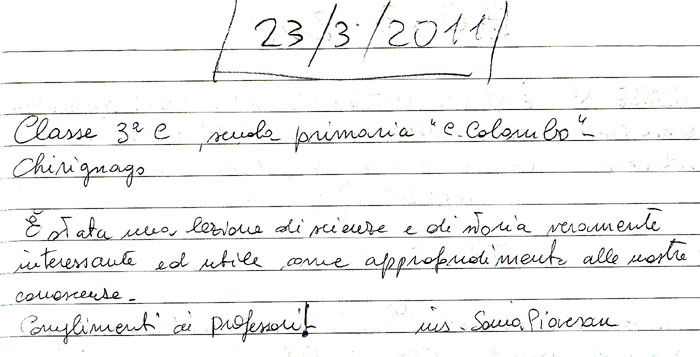 23/3/2011
Classe 3ª C, scuola primaria "C. Colombo" -
Chirignago
È stata una lezione di scienze e di storia veramente
interessante ed utile come approfondimento alle nostre
conoscenze.
Complimenti ai professori!   ins. Sonia Piovesan